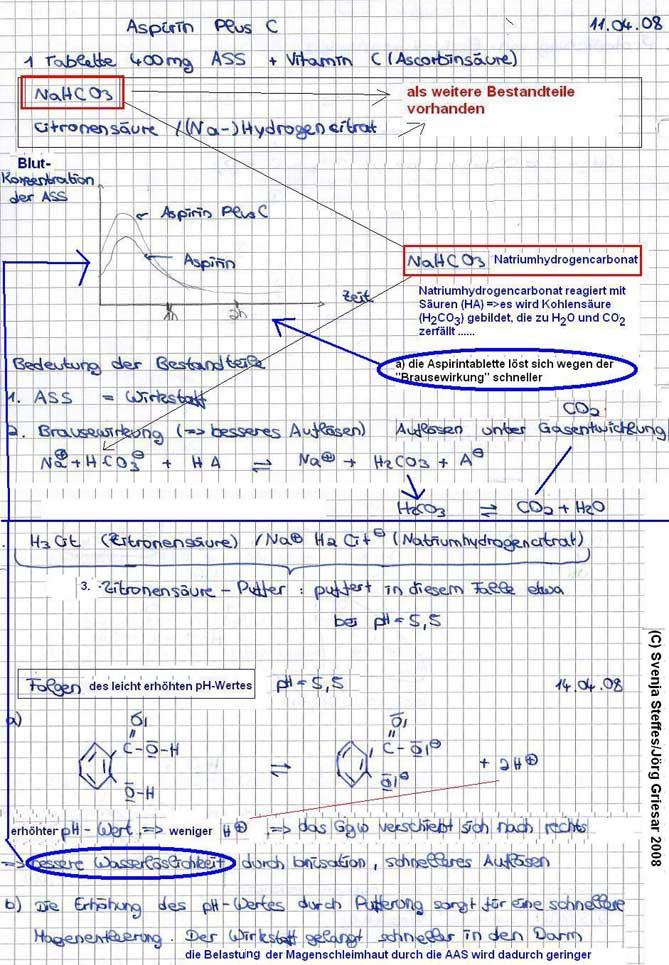 Aspirin Plus C 11.04.08
1 Tablette 400mg ASS + Vitamin C (Ascorbinsäure)
NaHCO3 als weitere Bestandteile
vorhanden
Citronensäure /(Na-)Hydrogencitrat
Blut-
Konzentration
der ASS
Aspirin Plus C
Aspirin
Zeit
1h 2h
NaHCO3 Natriumhydrogencarbonat
Natriumhydrogencarbonat reagiert mit
Säuren (HA) =>es wird Kohlensäure
(H2CO3) gebildet, die zu H2O und CO2
zerfällt ......
a) die Aspirintablette löst sich wegen der
"Brausewirkung" schneller
Bedeutung der Bestandteile
1. ASS = Wirkstoff
CO2
2. Brausewirkung (=> besseres Auflösen) Auflösen unter Gasentwicklung
Na⊕ + HCO3⊖ + HA ⇌ Na⊕ + H2CO3 + A⊖
H2CO3 ⇌ CO2 + H2O
H3Cit (Zitronensäure) /Na⊕ H2Cit⊖ (Natriumhydrogencitrat)
3. Zitronensäure - Puffer : puffert in diesem Falle etwa
bei pH = 5,5
Folgen des leicht erhöhten pH-Wertes pH = 5,5 14.04.08
a)
O
C-O-H
O-H
⇌
O
C-O⊖
O⊖
+ 2H⊕
erhöhter pH-Wert => weniger H⊕ => das Ggw verschiebt sich nach rechts
=> bessere Wasserlöslichkeit durch Ionisation, schnelleres Auflösen
b) Die Erhöhung des pH-Wertes durch Pufferung sorgt für eine schnellere
Magenentleerung. Der Wirkstoff gelangt schneller in den Darm
die Belastung der Magenschleimhaut durch die AAS wird dadurch geringer
(C) Svenja Steffes/Jörg Griesar 2008